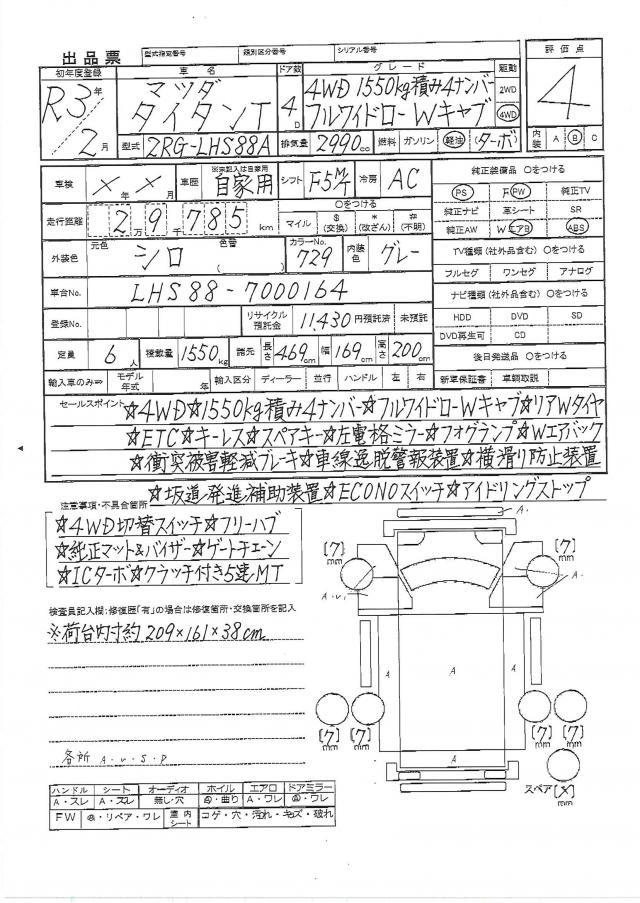 出品票 型式指定番号 類別区分番号 シリアル番号
初年度登録 車名 ドア数 グレード 駆動 評価点
R3年 マツダ 4WD 1550kg積み4ナンバー 2WD 4
2月 タイタンT 4D フルワイドロー Wキャブ 4WD
型式 2RG-LHS88A 排気量 2990cc 燃料 ガソリン 軽油 ターボ 内装 A B C
車検 ×年×月 車歴 ※未記入は自家用 自家用 シフト F5M/T 冷房 AC 純正装備品 〇をつける
PS PW 純正TV
走行距離 2万9千785km 〇をつける マイル $(交換) *(改ざん) #(不明) 純正ナビ 革シート SR
純正AW WエアB ABS
外装色 元色 シロ 色替 ( ) カラーNo. 729 内装色 グレー TV種類(社外品含む) 〇をつける
フルセグ ワンセグ アナログ
車台No. LHS88-7000164 ナビ種類(社外品含む) 〇をつける
登録No. リサイクル預託金 11,430円預託済 未預託 HDD DVD SD
DVD再生可 CD
定員 6人 積載量 1550kg 諸元 長さ 469cm 幅 169cm 高さ 200cm 後日発送品 〇をつける
輸入車のみ⇒ モデル年式 年 輸入区分 ディーラー 並行 ハンドル 左 右 新車保証書 車輌取説
セールスポイント ☆4WD☆1550kg積み4ナンバー☆フルワイドローWキャブ☆リアWタイヤ
☆ETC☆キーレス☆スペアキー☆左電格ミラー☆フォグランプ☆Wエアバック
☆衝突被害軽減ブレーキ☆車線逸脱警報装置☆横滑り防止装置
☆坂道発進補助装置☆ECONOスイッチ☆アイドリングストップ
注意事項・不具合箇所
☆4WD切替スイッチ☆フリーハブ
☆純正マット&バイザー☆ゲートチェーン
☆ICターボ☆クラッチ付き5速MT
検査員記入欄:修復歴「有」の場合は修復箇所・交換箇所を記入
※荷台内寸約209×161×38cm
各所 A・U・S・P
A.
[7]mm [7]mm
A・U, A.
A A A
[7]mm [7]mm [7]mm [7]mm
A
スペア[×]mm
ハンドル シート オーディオ ホイル エアロ ドアミラー
A・スレ A・スレ 無し・穴 ・曲り A・ワレ ・ワレ
FW ・リペア・ワレ 室内シート コゲ・穴・汚れ・キズ・破れ